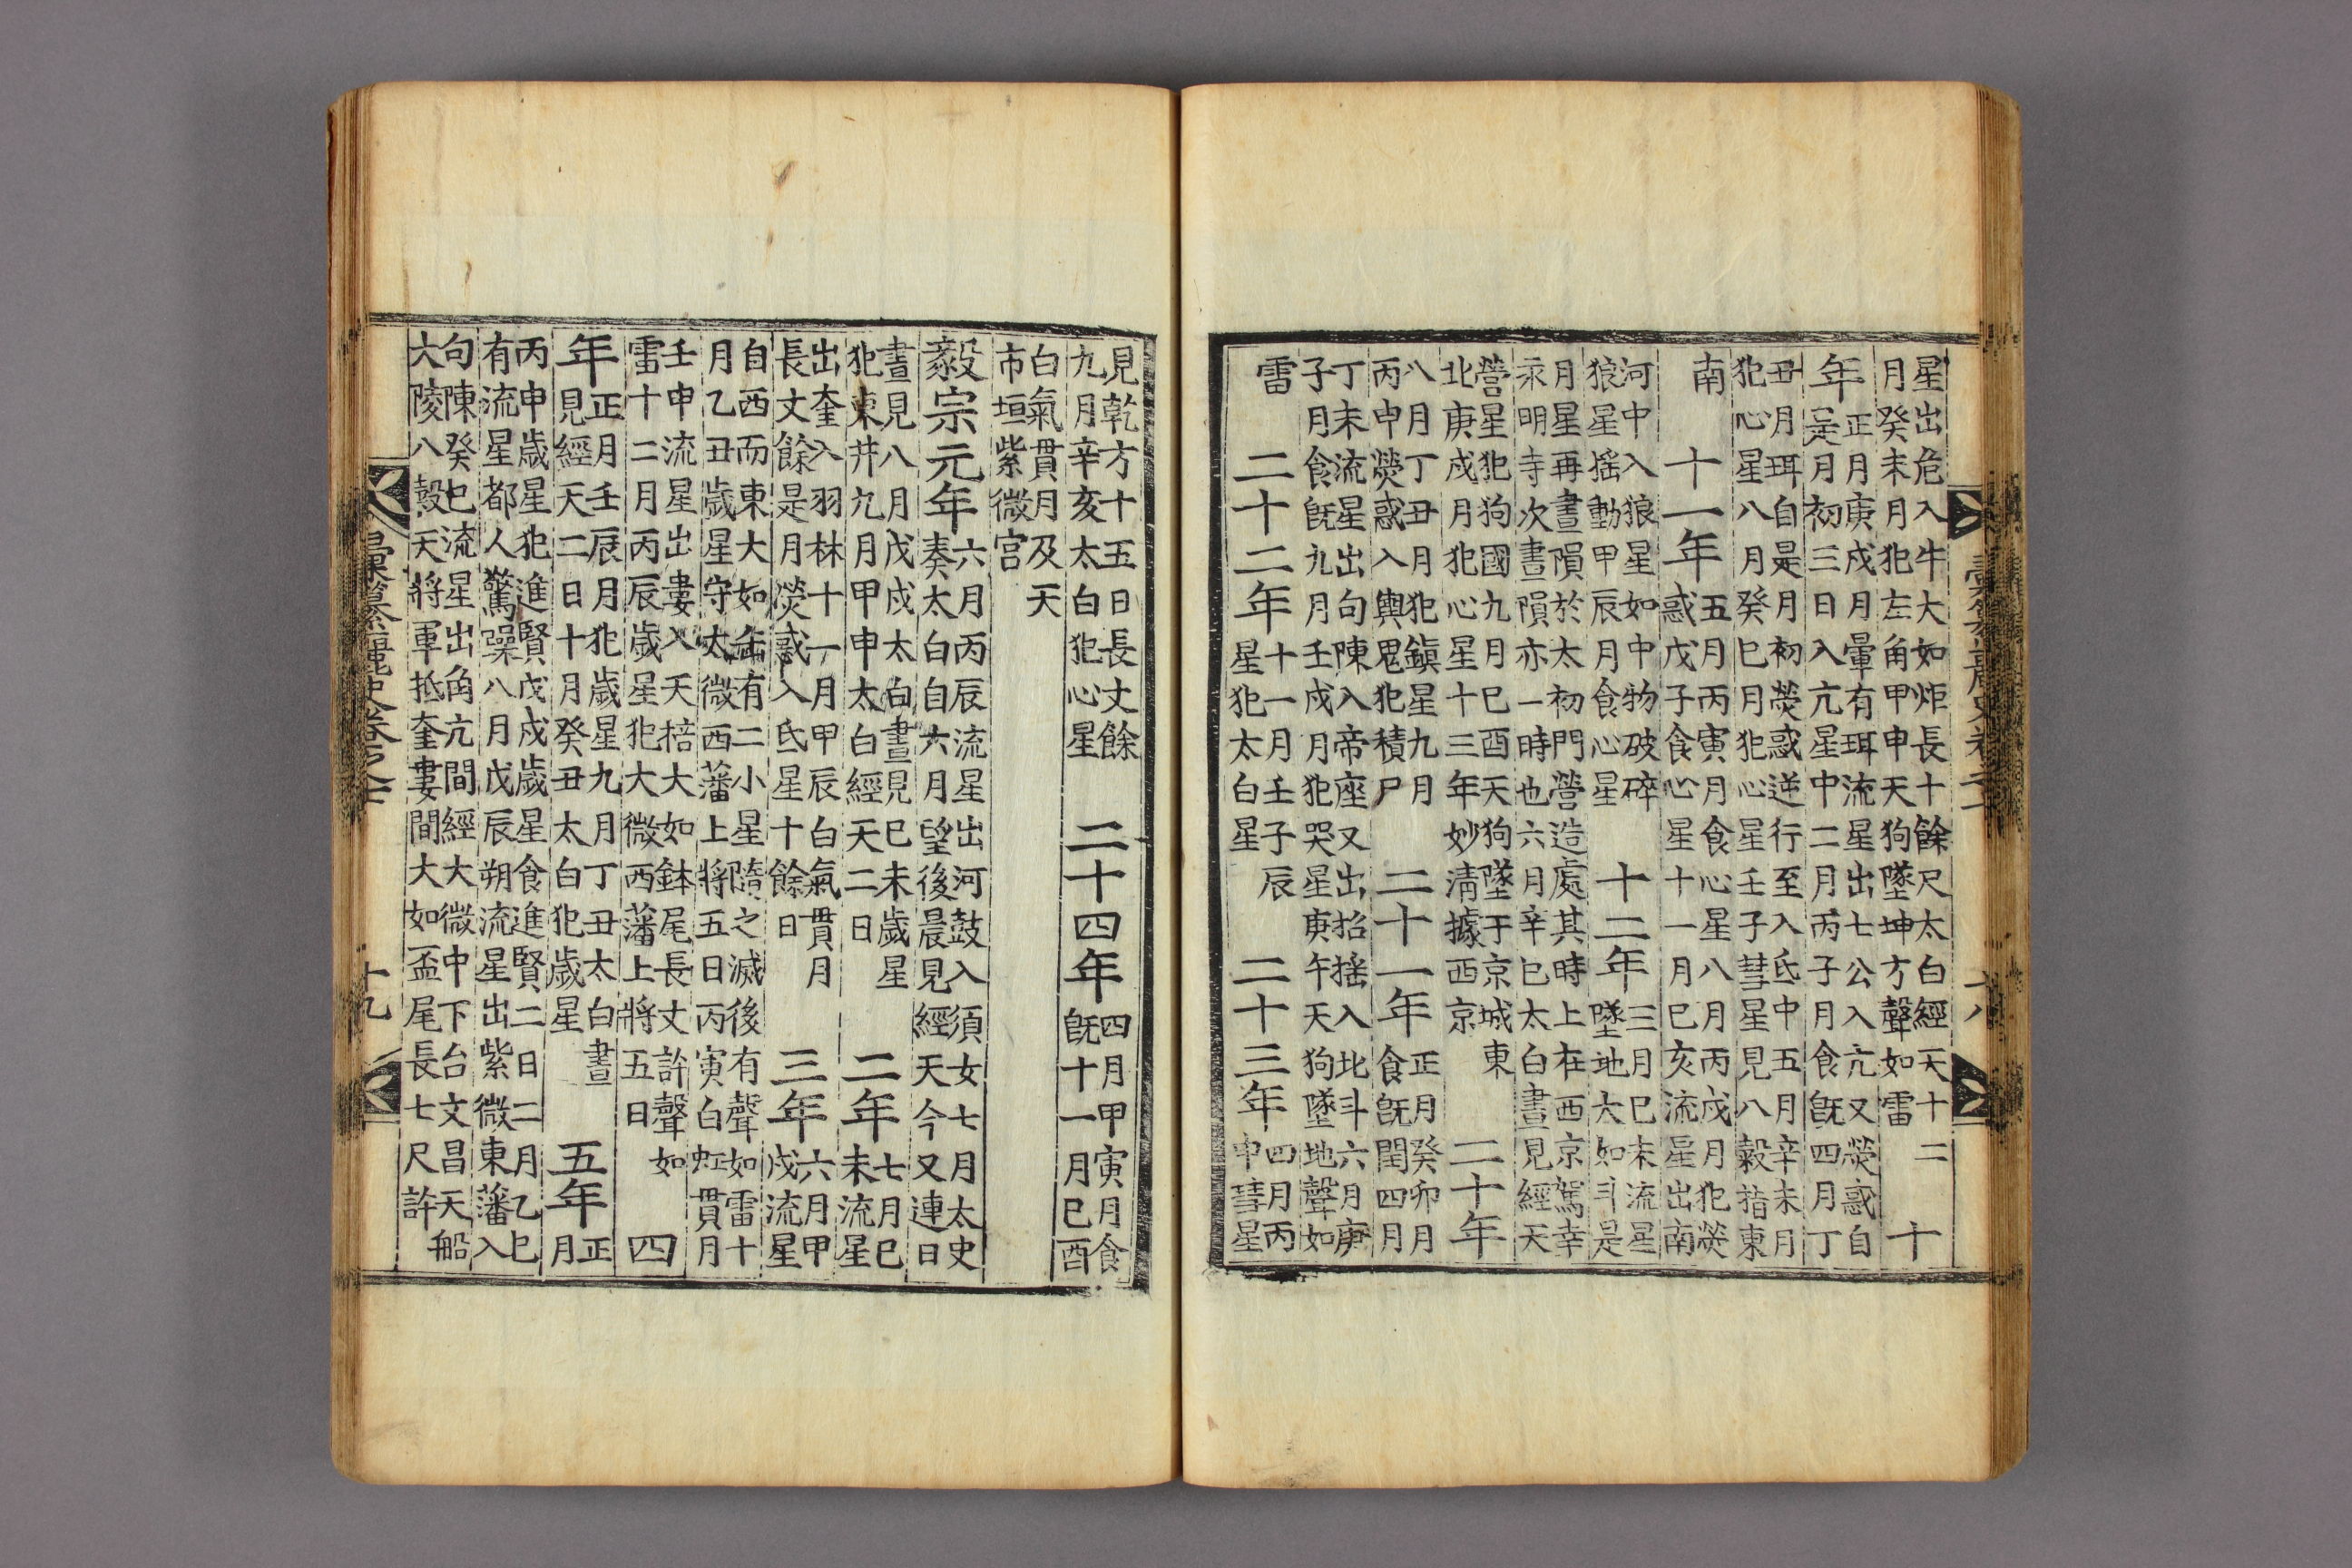 星出危入牛大如炬長十餘尺太白經天十二
月癸未月犯左角甲申天狗墜坤方聲如雷
十
年
正月庚戌月暈有珥流星出七公入亢又熒惑自
是月初三日入亢星中二月丙子月食旣四月丁
丑月珥自是月初熒惑逆行至入氐中五月辛未月
犯心星八月癸巳月犯心星壬子彗星見八穀指東
南
十一年
五月丙寅月食心星八月丙戌月犯熒
惑戊子食心星十一月己亥流星出南
河中入狼星如中物破碎
狼星搖動甲辰月食心星
十二年
三月己未流星
墜地大如斗是
月星再晝隕於太初門營造處其時上在西京駕幸
永明寺次晝隕亦一時也六月辛巳太白晝見經天
營星犯狗國九月己酉天狗墜于京城東
北庚戌月犯心星十三年妙淸據西京
二十年
八月丁丑月犯鎭星九月
丙申熒惑入輿鬼犯積尸
二十一年
正月癸卯月
食旣閏四月
丁未流星出句陳入帝座又出招搖入北斗六月庚
子月食旣九月壬戌月犯哭星庚午天狗墜地聲如
雷
二十二年
十一月壬子辰
星犯太白星
二十三年
四月丙
申彗星
見乾方十五日長丈餘
九月辛亥太白犯心星
二十四年
四月甲寅月食
旣十一月己酉
白氣貫月及天
市垣紫微宮
毅宗元年
六月丙辰流星出河鼓入須女七月太史
奏太白自六月望後晨見經天今又連日
晝見八月戊戌太白晝見己未歲星
犯東井九月甲申太白經天二日
二年
七月己
未流星
出奎入羽林十一月甲辰白氣貫月
長丈餘是月熒惑入氐星十餘日
三年
六月甲
戌流星
自西而東大如缶有二小星隨之滅後有聲如雷十
月乙丑歲星守太微西藩上將五日丙寅白虹貫月
壬申流星出婁入天棓大如鉢尾長丈許聲如
雷十二月丙辰歲星犯大微西藩上將五日
四
年
正月壬辰月犯歲星九月丁丑太白晝
見經天二日十月癸丑太白犯歲星
五年
正
月
丙申歲星犯進賢戊戌歲星食進賢二日二月乙巳
有流星都人驚躁八月戊辰朔流星出紫微東藩入
句陳癸巳流星出角亢間經大微中下台文昌天船
六陵八穀天將軍抵奎婁間大如盃尾長七尺許
彙纂麗史卷之
十九